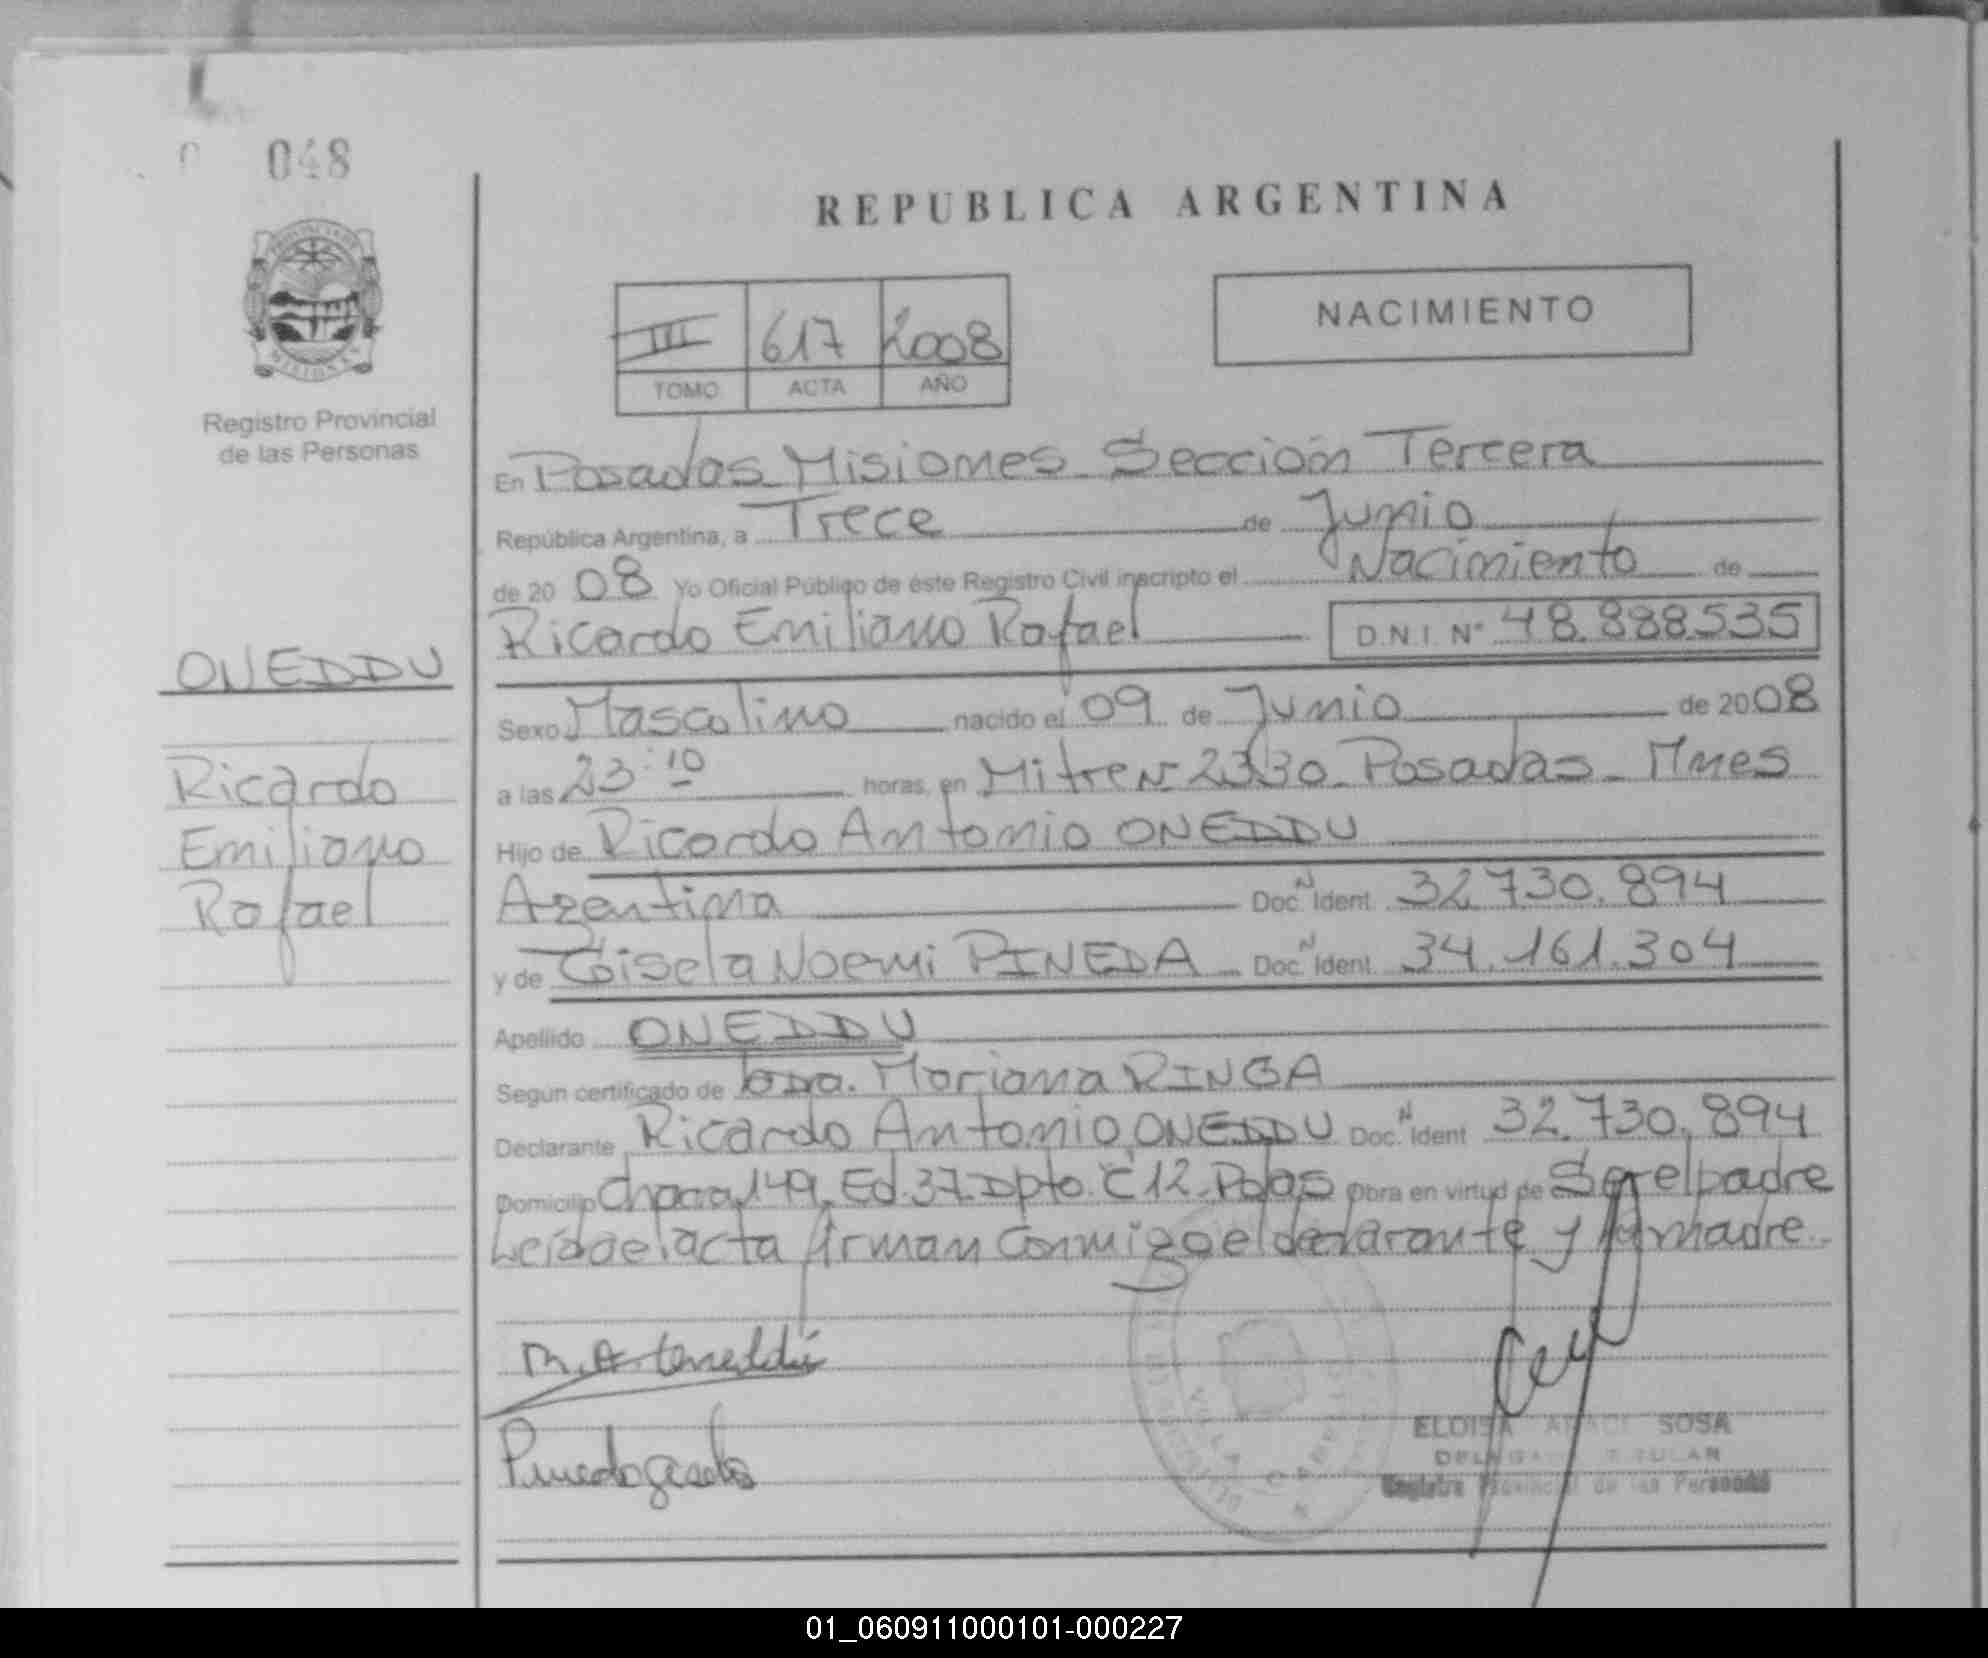 048
REPUBLICA ARGENTINA
PROVINCIA DE
MISIONES
Registro Provincial
de las Personas
III 617 2008
TOMO ACTA AÑO
NACIMIENTO
En Posadas Misiones Sección Tercera
República Argentina, a Trece de Junio
de 20 08 Yo Oficial Público de éste Registro Civil inscripto el Nacimiento de
Ricardo Emiliano Rafael D.N.I. Nº 48.888.535
ONEDDU
Ricardo
Emiliano
Rafael
Sexo Masculino nacido el 09 de Junio de 20 08
a las 23:10 horas, en Mitre Nº 2330 Posadas - Mnes
Hijo de Ricardo Antonio ONEDDU
Argentina Doc. N Ident. 32.730.894
y de Gisela Noemi PINEDA Doc. N Ident. 34.161.304
Apellido ONEDDU
Según certificado de Dra. Mariana RINGA
Declarante Ricardo Antonio ONEDDU Doc. N Ident 32.730.894
Domicilio Chacra 149, Ed. 37 Dpto. C 12. Pdas Obra en virtud de Ser el padre
Leída el acta firman conmigo el declarante y la madre.
Pineda Gisela
VILLA CABELLO
ELOISA SOSA
Registro Provincial de las Personas
01_060911000101-000227